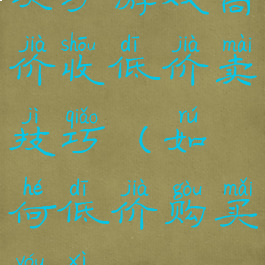 jià shōu dī jià mài
价收低价卖
jì qiǎo rú
技巧（如
hé dī jià gòu mǎi
何低价购买
yóu xì